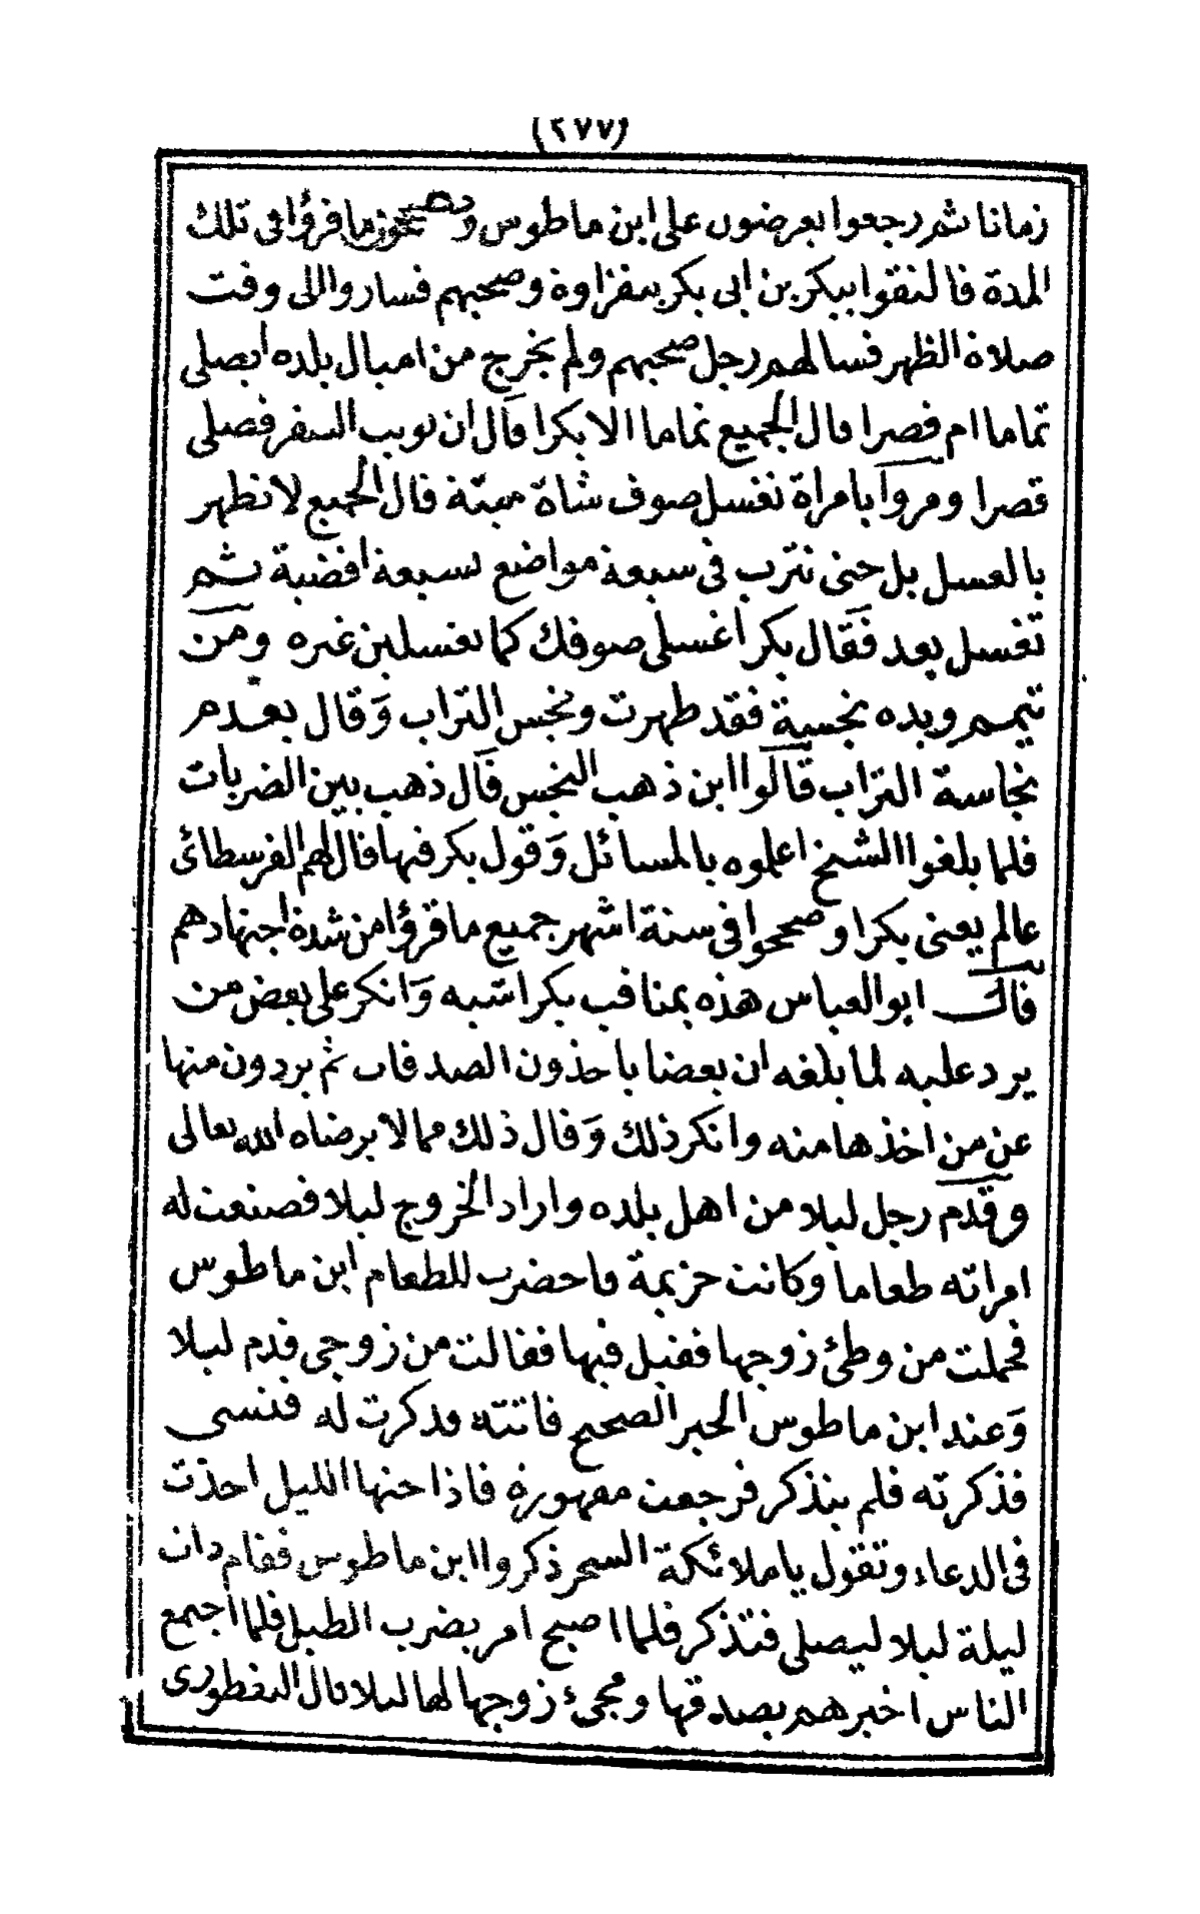 (٢٧٧)
زمانا ثم رجعوا يعرضون على ابن ماطوس ويصححون ما قرؤا في تلك
المدة فالتقوا ببكر بن ابى بكر بمفزاوة وصحبهم فساروا الى وقت
صلاة الظهر فسالهم رجل صحبهم ولم يخرج من اميال بلده ايصلى
تماما ام قصرا قال الجميع تماما الا بكرا قال ان نويت السفر فصلى
قصرا ومروا بامراة تغسل صوف شاة ميتة قال الجميع لا تطهر
بالغسل بل حتى تترب في سبعة مواضع لسبعة اقضبة ثم
تغسل بعد فقال بكر اغسلى صوفك كما تغسلين غيره ومن
تيمم ويده نجسة فقد طهرت ونجس التراب وقال بعدم
نجاسة التراب قالوا اين ذهب النجس قال ذهب بين الضربات
فلما بلغوا الشيخ اعلموه بالمسائل وقول بكر فيها فقال لهم الفرسطائى
عالم يعنى بكرا وصححوا في ستة اشهر جميع ما قرؤا من شدة اجتهادهم
قال ابو العباس هذه بمناقب بكر اشبه وانكر على بعض من
يرد عليه لما بلغه ان بعضا ياخذون الصدقات ثم يردون منها
عن من اخذها منه وانكر ذلك وقال ذلك مما لا يرضاه الله تعالى
وقدم رجل ليلا من اهل بلده واراد الخروج ليلا فصنعت له
امراته طعاما وكانت حزيمة فاحضرت للطعام ابن ماطوس
فحملت من وطئ زوجها فقيل فيها فقالت من زوجى قدم ليلا
وعند ابن ماطوس الخبر الصحيح فاتته فذكرت له فنسى
فذكرته فلم يتذكر فرجعت مقهورة فاذا جنها الليل اخذت
في الدعاء وتقول يا ملائكة السحر ذكروا ابن ماطوس فقام ذات
ليلة ليلا ليصلى فتذكر فلما اصبح امر بضرب الطبل فلما اجتمع
الناس اخبرهم بصدقها ومجئ زوجها لها ليلا قال البغطورى